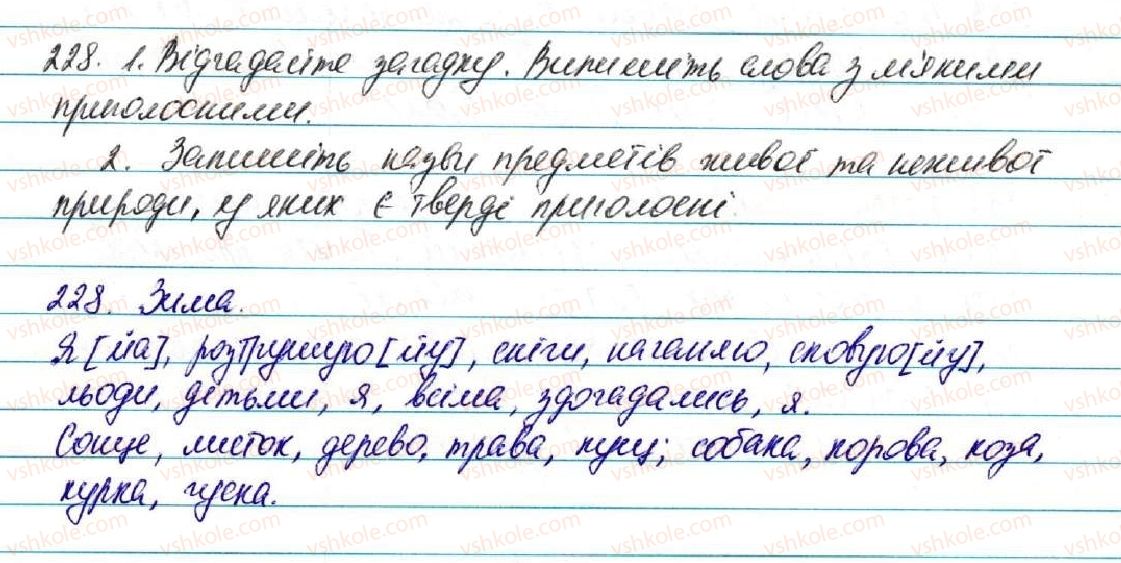 228. 1. Відгадайте загадку. Випишіть слова з м'якими
приголосними.
2. Запишіть назви предметів живої та неживої
природи, у яких є тверді приголосні.
228. Зима.
Я [йа], розтрушую [йу], сніги, наганяю, сковую [йу],
льоди, дітьми, я, всіма, здогадались, я.
Сонце, листок, дерево, трава, кущ; собака, корова, коза,
курка, гуска.